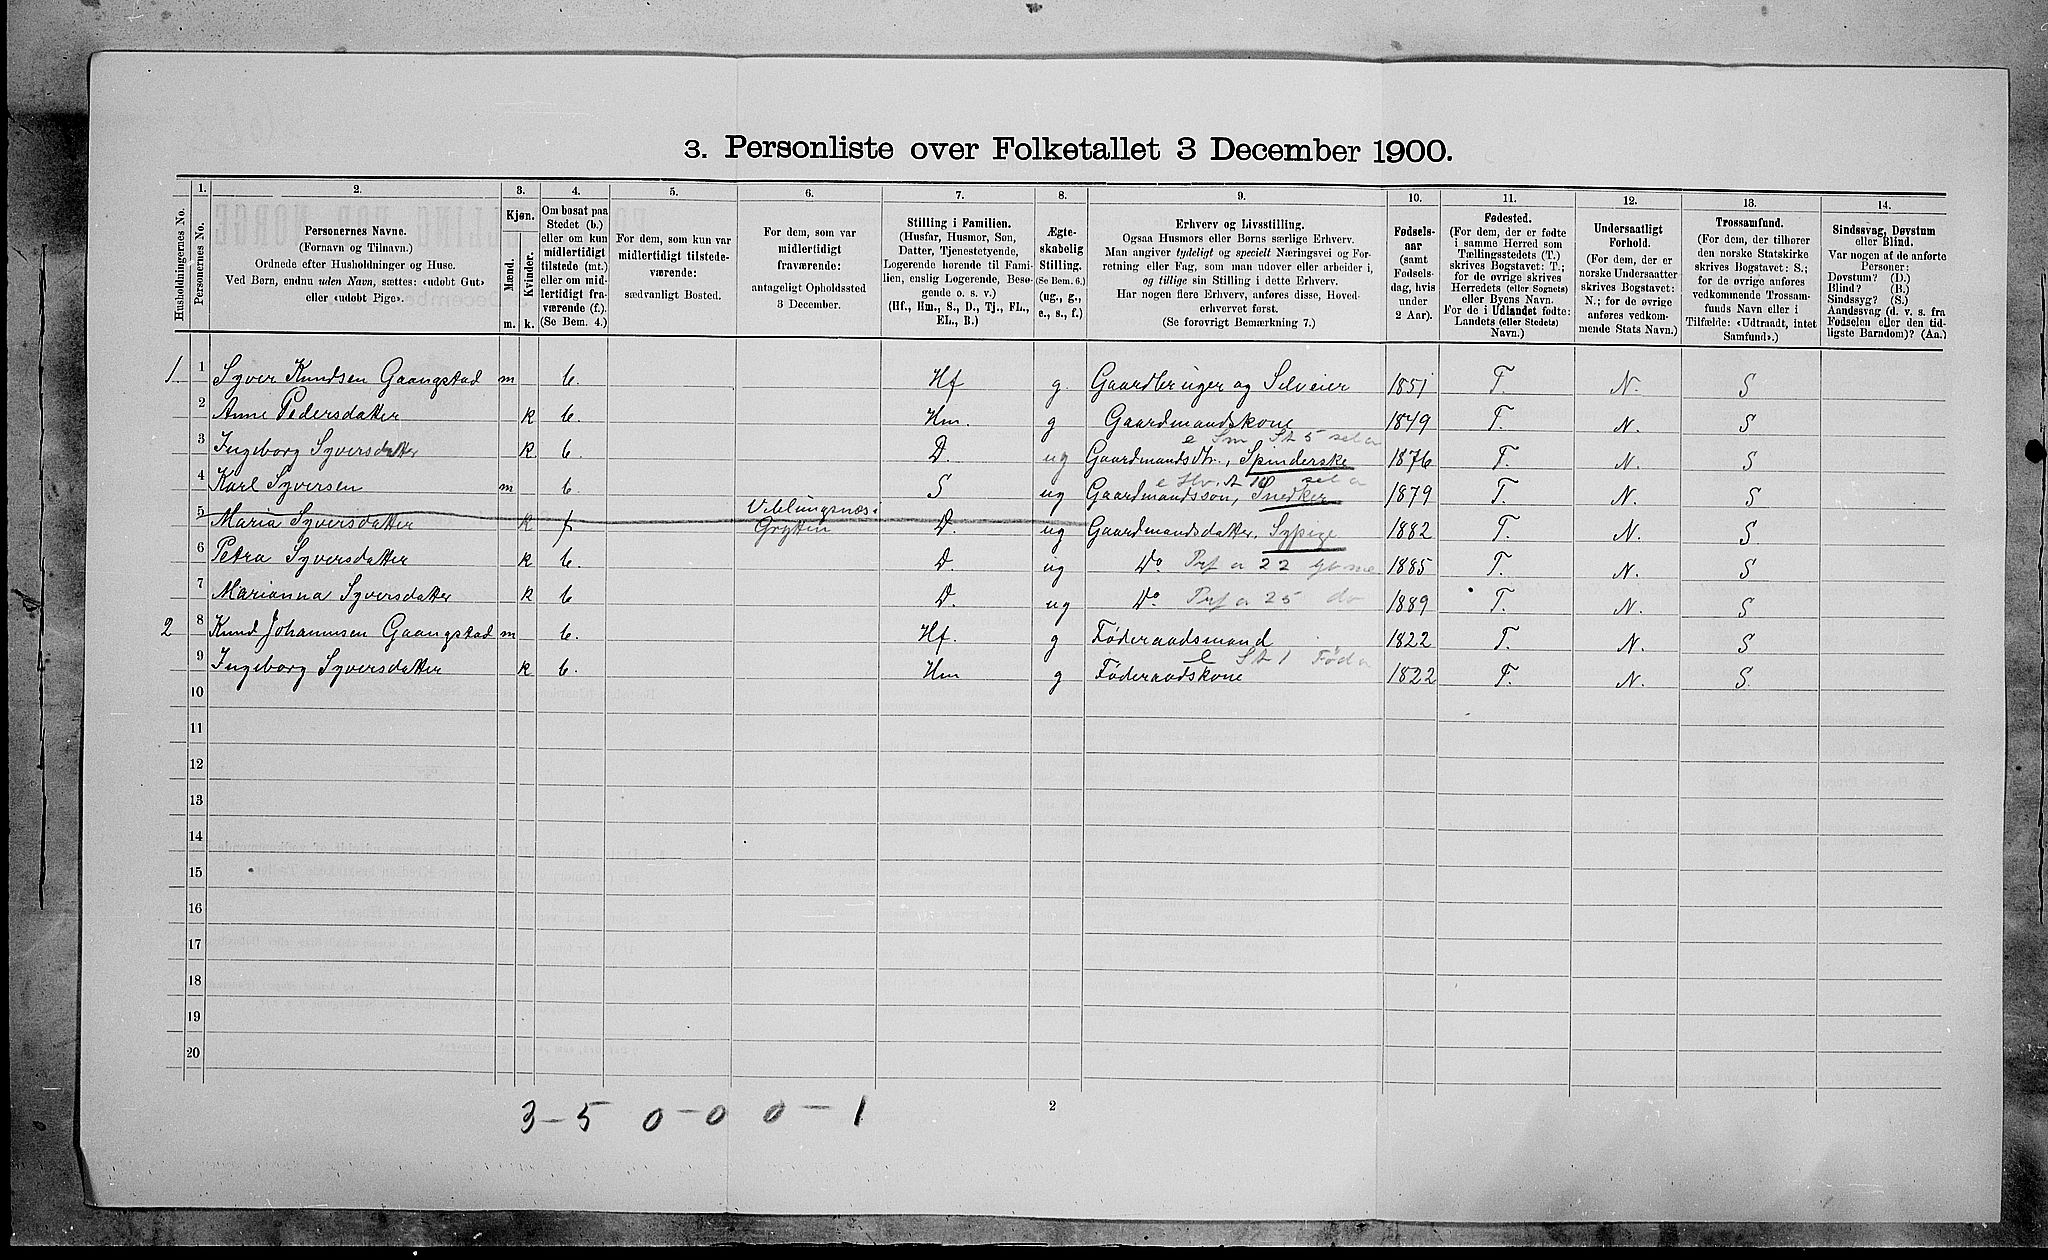 3. Personliste over Folketallet 3 December 1900.
Husholdningernes No.
1.
Personernes No.
2.
Personernes Navne.
(Fornavn og Tilnavn.)
Ordnede efter Husholdninger og Huse.
Ved Børn, endnu uden Navn, sættes: «udøbt Gut»
eller «udøbt Pige».
3.
Kjøn.
Mænd.
Kvinder.
m.
k.
4.
Om bosat paa
Stedet (b.)
eller om kun
midlertidigt
tilstede (mt.)
eller om mid-
lertidigt fra-
værende (f.).
(Se Bem. 4.)
5.
For dem, som kun var
midlertidigt tilstede-
værende:
sædvanligt Bosted.
6.
For dem, som var
midlertidigt
fraværende:
antageligt Opholdssted
3 December.
7.
Stilling i Familien.
(Husfar, Husmor, Søn,
Datter, Tjenestetyende,
Logerende hørende til Fami-
lien, enslig Logerende, Besø-
gende o. s. v.)
(Hf., Hm., S., D., Tj., FL.,
EL., B.)
8.
Ægte-
skabelig
Stilling.
(Se Bem. 6.)
(ug., g.,
e., s., f.)
9.
Erhverv og Livsstilling.
Ogsaa Husmors eller Børns særlige Erhverv.
Man angiver tydeligt og specielt Næringsvei og For-
retning eller Fag, som man udøver eller arbeider i,
og tillige sin Stilling i dette Erhverv.
Har nogen flere Erhverv, anføres disse, Hoved-
erhvervet først.
(Se forøvrigt Bemærkning 7.)
10.
Fødsels-
aar
(samt
Fødsels-
dag, hvis
under
2 Aar).
11.
Fødested.
(For dem, der er fødte
i samme Herred som
Tællingsstedets (T.)
skrives Bogstavet: T.;
for de øvrige skrives
Herredets (eller Sognets)
eller Byens Navn.
For de i Udlandet fødte:
Landets (eller Stedets)
Navn.)
12.
Undersaatligt
Forhold.
(For dem, der er
norske Undersaatter
skrives Bogstavet:
N.; for de øvrige
anføres vedkom-
mende Stats Navn.)
13.
Trossamfund.
(For dem, der tilhører
den norske Statskirke
skrives Bogstavet: S.;
for de øvrige anføres
vedkommende Trossam-
funds Navn eller i
Tilfælde: «Udtraadt, intet
Samfund».)
14.
Sindssvag, Døvstum
eller Blind.
Var nogen af de anførte
Personer:
Døvstum? (D.)
Blind? (B.)
Sindssyg? (S.)
Aandssvag (d. v. s. fra
Fødselen eller den tid-
ligste Barndom)? (Aa.)
1. 1 Syver Knudsen Gaangstad m b. Hf g. Gaardbruger og Selveier 1851 T. N. S
2 Anne Pedersdatter k b. Hm. g Gaardmandskone 1849 T. N. S
e Sm St 5 sel a
3 Ingeborg Syversdatter k b. D. ug Gaardmandsdtr., Spinderske 1876 T. N. S
4 Karl Syversen m b. S ug Gaardmandssøn, Snedker 1879 T. N. S
Veblungsnæs.
5 Maria Syversdatter k f Grytten D. ug Gaardmandsdatter, Sypige 1882 T. N. S
6 Petra Syversdatter k b. D. ug Do 22 1885 T. N. S
7 Marianna Syversdatter k b D. ug Do 25 do 1889 T. N. S
2 8 Knud Johannsen Gaangstad m b. Hf. g Føderaadsmand 1822 T. N. S
e St 1 Fød a
9 Ingeborg Syversdatter k b. Hm g Føderaadskone 1822 T. N. S.
10
11
12
13
14
15
16
17
18
19
20
3 - 5 0 - 0 0 - 1
2